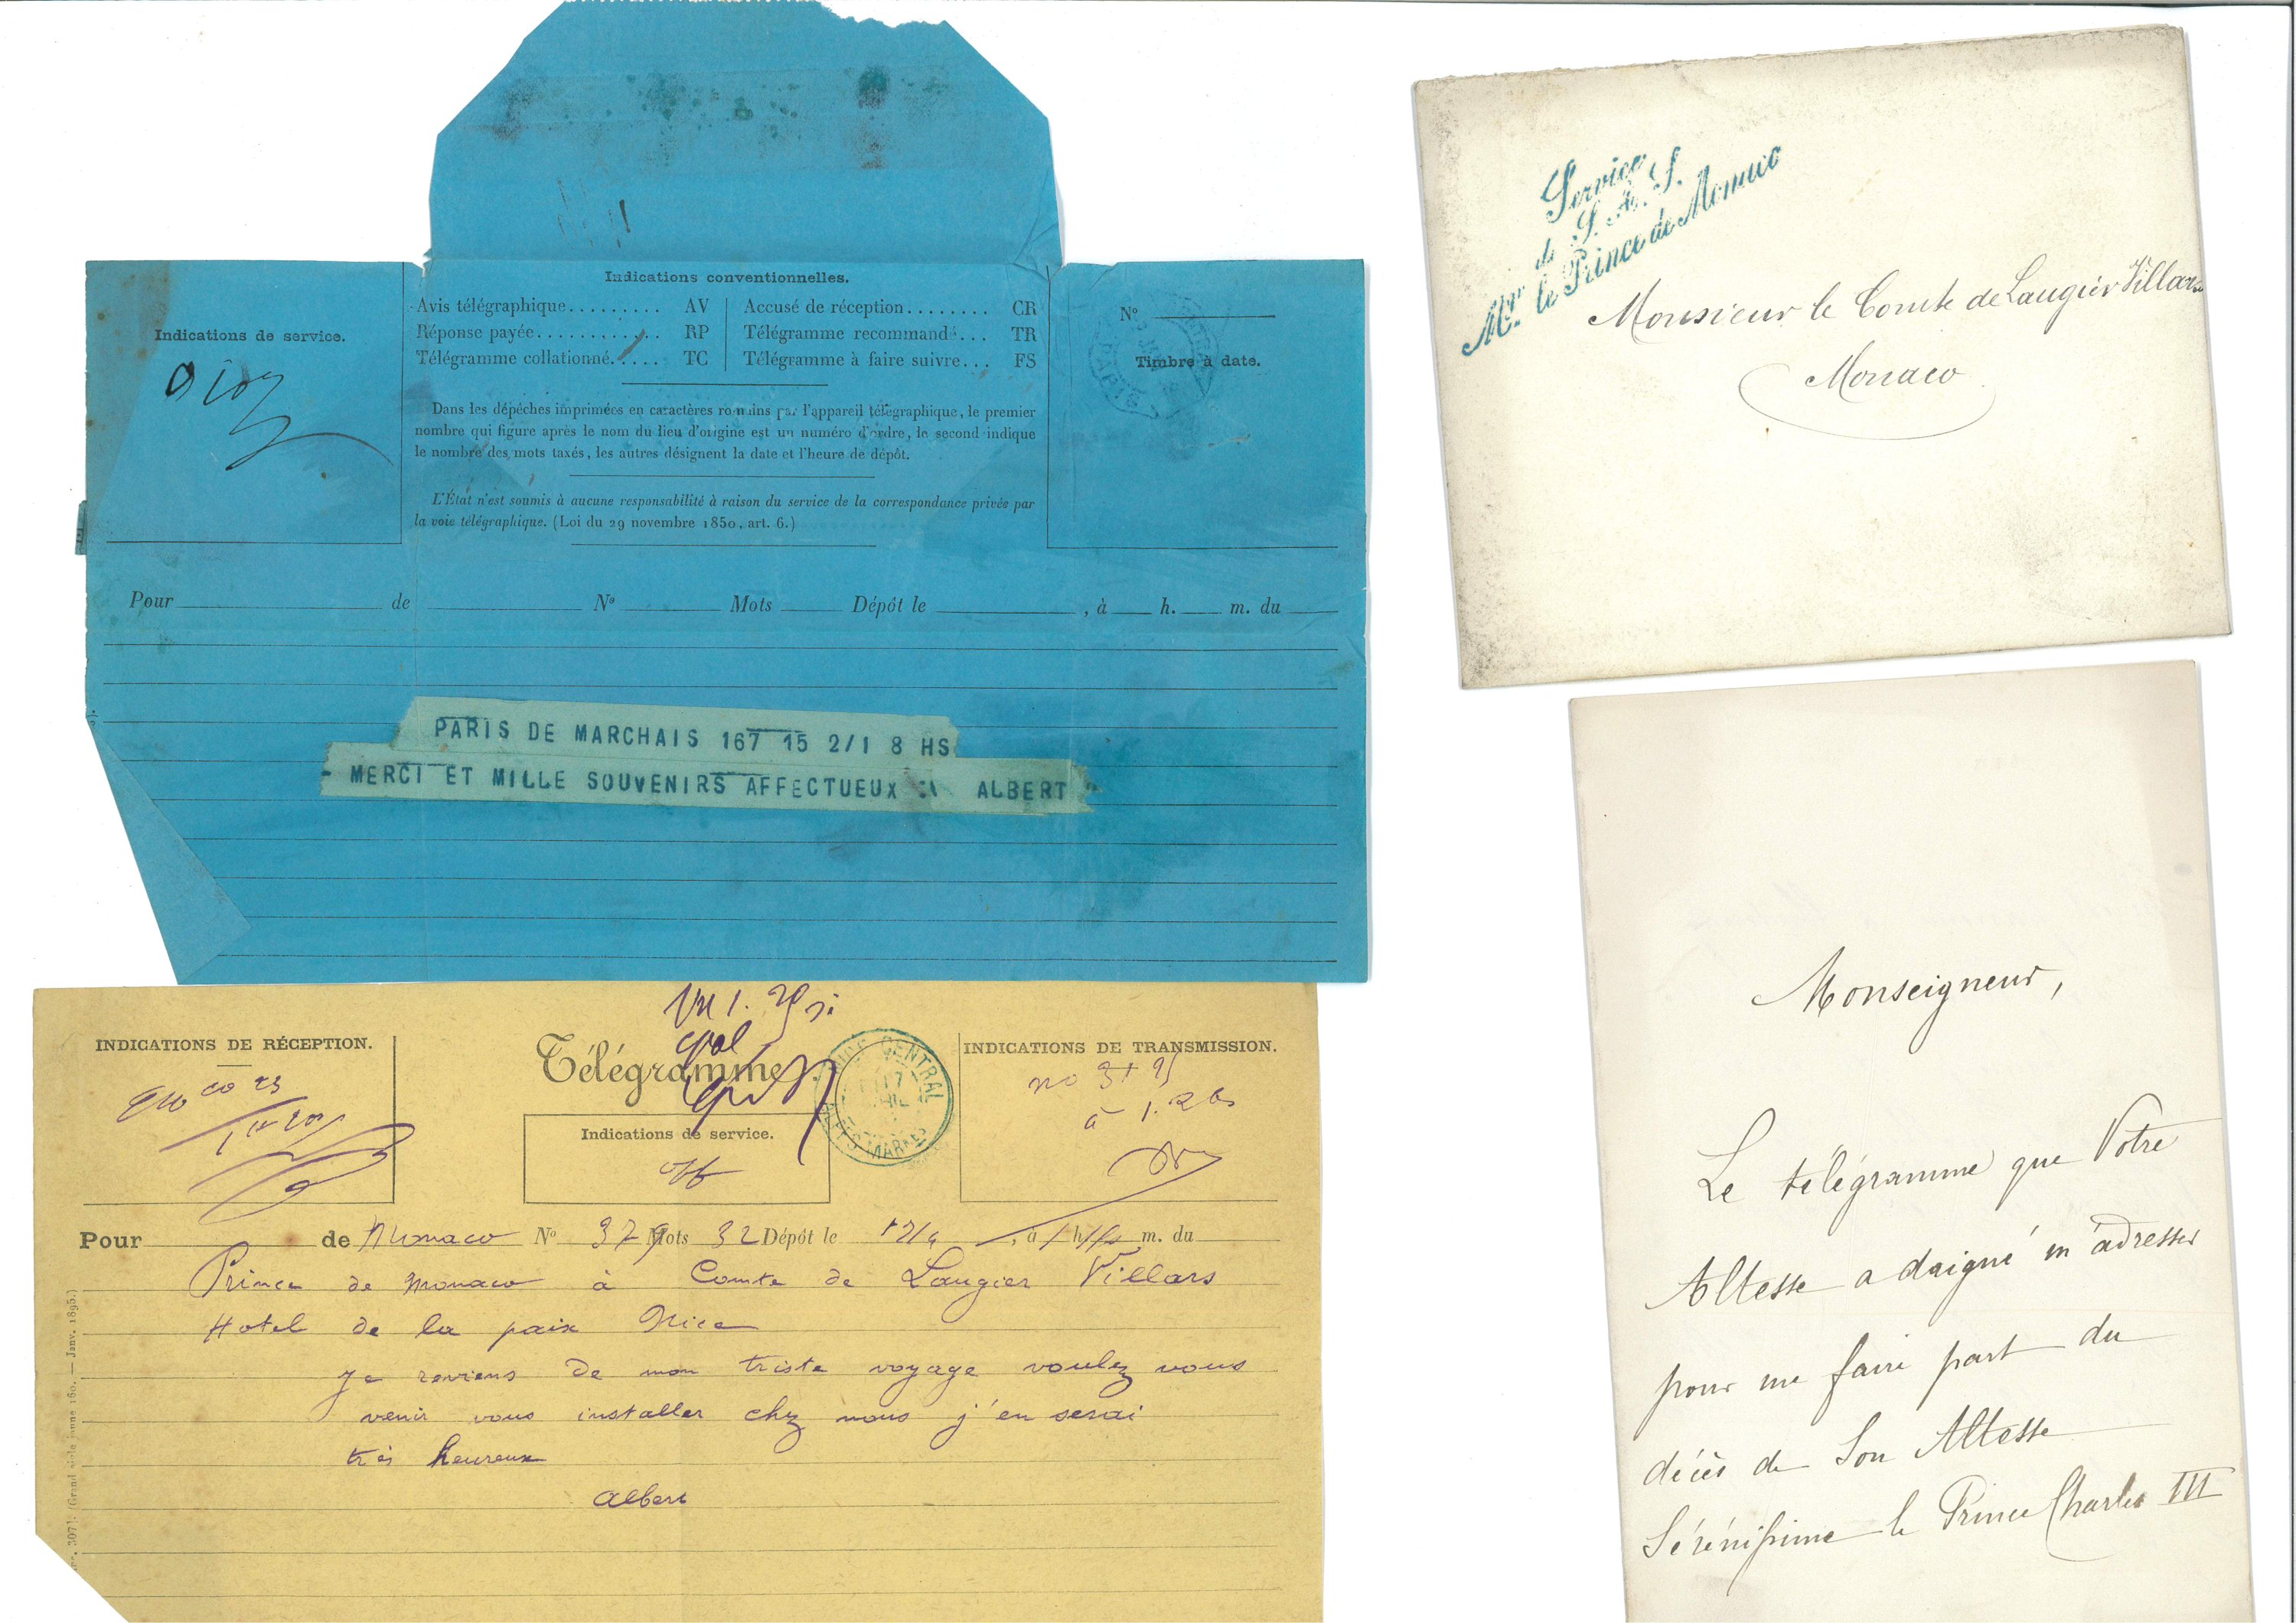 Indications de service.
Indications conventionnelles.
Avis télégraphique......... AV
Réponse payée............ RP
Télégramme collationné...... TC
Accusé de réception........ CR
Télégramme recommandé... TR
Télégramme à faire suivre... FS
Dans les dépêches imprimées en caractères romains par l'appareil télégraphique, le premier
nombre qui figure après le nom du lieu d'origine est un numéro d'ordre, le second indique
le nombre des mots taxés, les autres désignent la date et l'heure de dépôt.
L'État n'est soumis à aucune responsabilité à raison du service de la correspondance privée par
la voie télégraphique. (Loi du 29 novembre 1850, art. 6.)
N°
Timbre à date.
Pour de N° Mots Dépôt le , à h. m. du
PARIS DE MARCHAIS 167 15 2/1 8 HS
- MERCI ET MILLE SOUVENIRS AFFECTUEUX ALBERT
INDICATIONS DE RÉCEPTION.
Télégramme
Indications de service.
off
CENTRAL
INDICATIONS DE TRANSMISSION.
Pour de Monaco N° 379 Mots 32 Dépôt le , à h. m. du
Prince de Monaco à Comte de Laugier Villars
Hotel de la paix Nice
Je reviens de mon triste voyage voulez vous
venir vous installer chez nous j'en serai
très heureux
Albert
Janv. 1895.)
Service
de S. A. S.
Mgr. le Prince de Monaco
Monsieur le Comte de Laugier Villars
Monaco
Monseigneur,
Le télégramme que Votre
Altesse a daigné m'adresser
pour me faire part du
décès de Son Altesse
Sérénissime le Prince Charles III